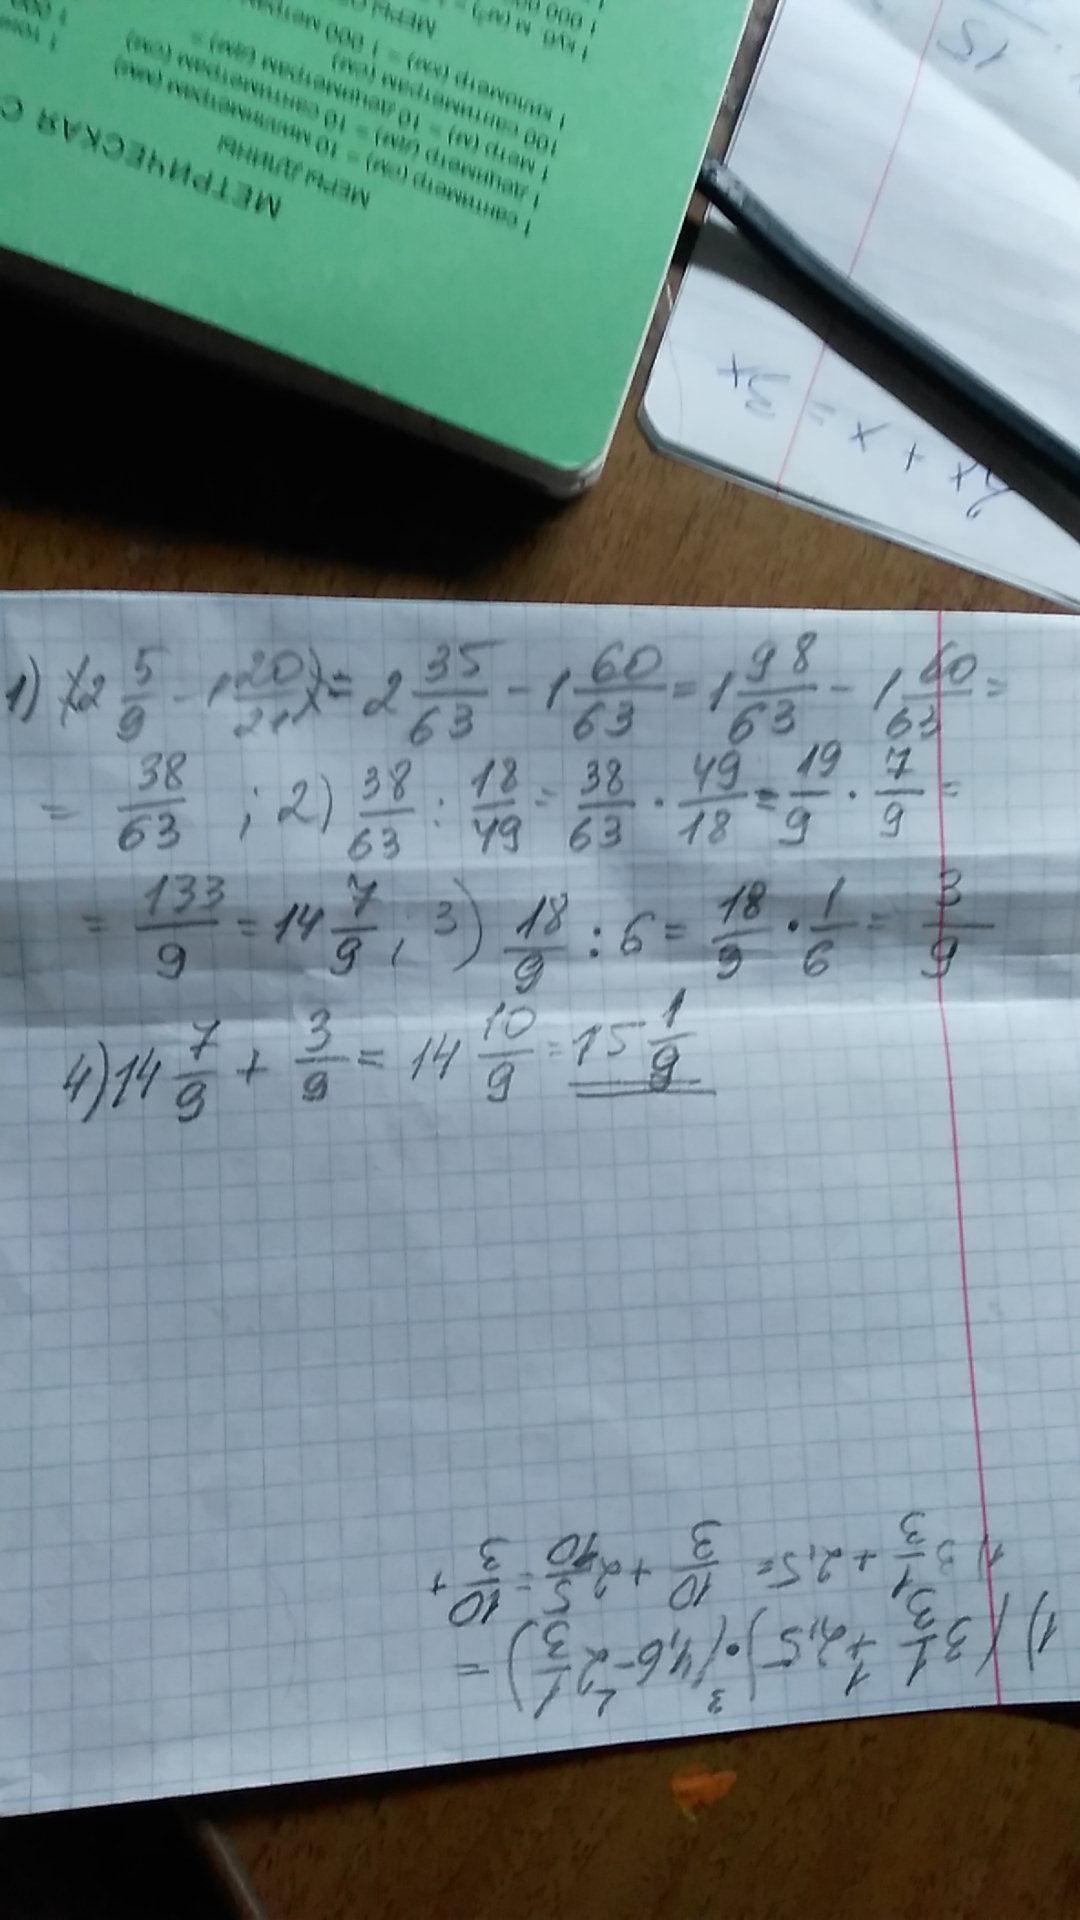 МЕТРИЧЕСКАЯ С
МЕРЫ ДЛИНЫ
1 сантиметр (см) = 10 миллиметрам (мм)
1 дециметр (дм) = 10 сантиметрам (см)
1 метр (м) = 10 дециметрам (дм) =
100 сантиметрам (см)
1 километр (км) = 1 000 метрам
15
2x + x = 3x
1) (2 5/9 - 1 20/21) = 2 35/63 - 1 60/63 = 1 98/63 - 1 60/63 =
= 38/63 ; 2) 38/63 : 18/49 = 38/63 · 49/18 = 19/9 · 7/9 =
= 133/9 = 14 7/9 , 3) 18/9 : 6 = 18/9 · 1/6 = 3/9
4) 14 7/9 + 3/9 = 14 10/9 = 15 1/9
1) (3 1/3 + 2,5) · (4,6 - 2 1/3) =
1) 3 1/3 + 2,5 = 10/3 + 2 5/10 = 10/3 +